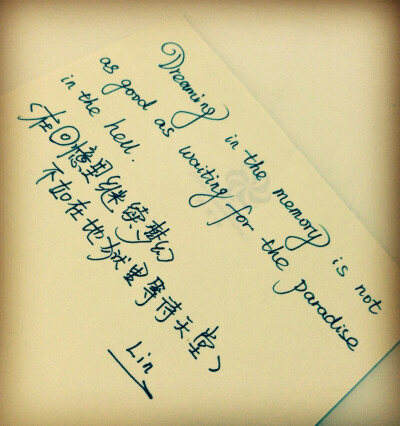 Dreaming in the memory is not
as good as waiting for the paradise
in the hell.
(在回憶里继续梦幻
不如在地狱里等待天堂)
Lin